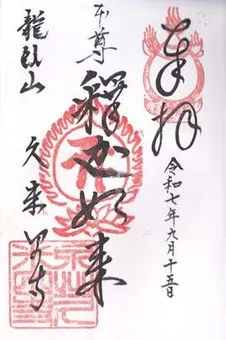 奉拝
令和七年九月十五日
本尊
釋迦如来
龍臥山
久来山寺